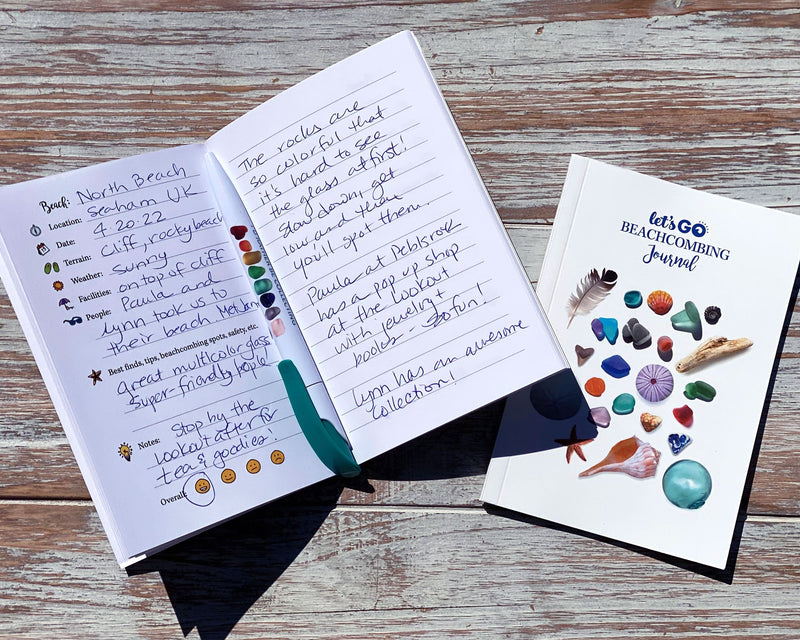 Beach: North Beach
Location: Seaham UK
Date: 4.20.22
Terrain: Cliff, rocky beach
Weather: Sunny
Facilities: on top of cliff
People: Paula and
Lynn took us to
their beach Met Jan
Best finds, tips, beachcombing spots, safety, etc.
great multicolor glass
super-friendly people
Notes: Stop by the
Lookout after for
tea & goodies!
Overall:
The rocks are
so colorful that
it's hard to see
the glass at first!
Slow down, get
low and then
you'll spot them.
Paula at Peblsrock
has a pop up shop
at the lookout
with jewelry +
books - So fun!
Lynn has an awesome
collection!
let's GO
BEACHCOMBING
Journal